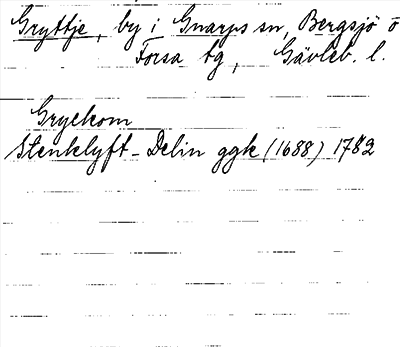 Gryttje, by i Gnarps sn, Bergsjö o
Forsa tg, Gävleb. l.
Gryekom
Stenklyft - Delin ggk (1688) 1782